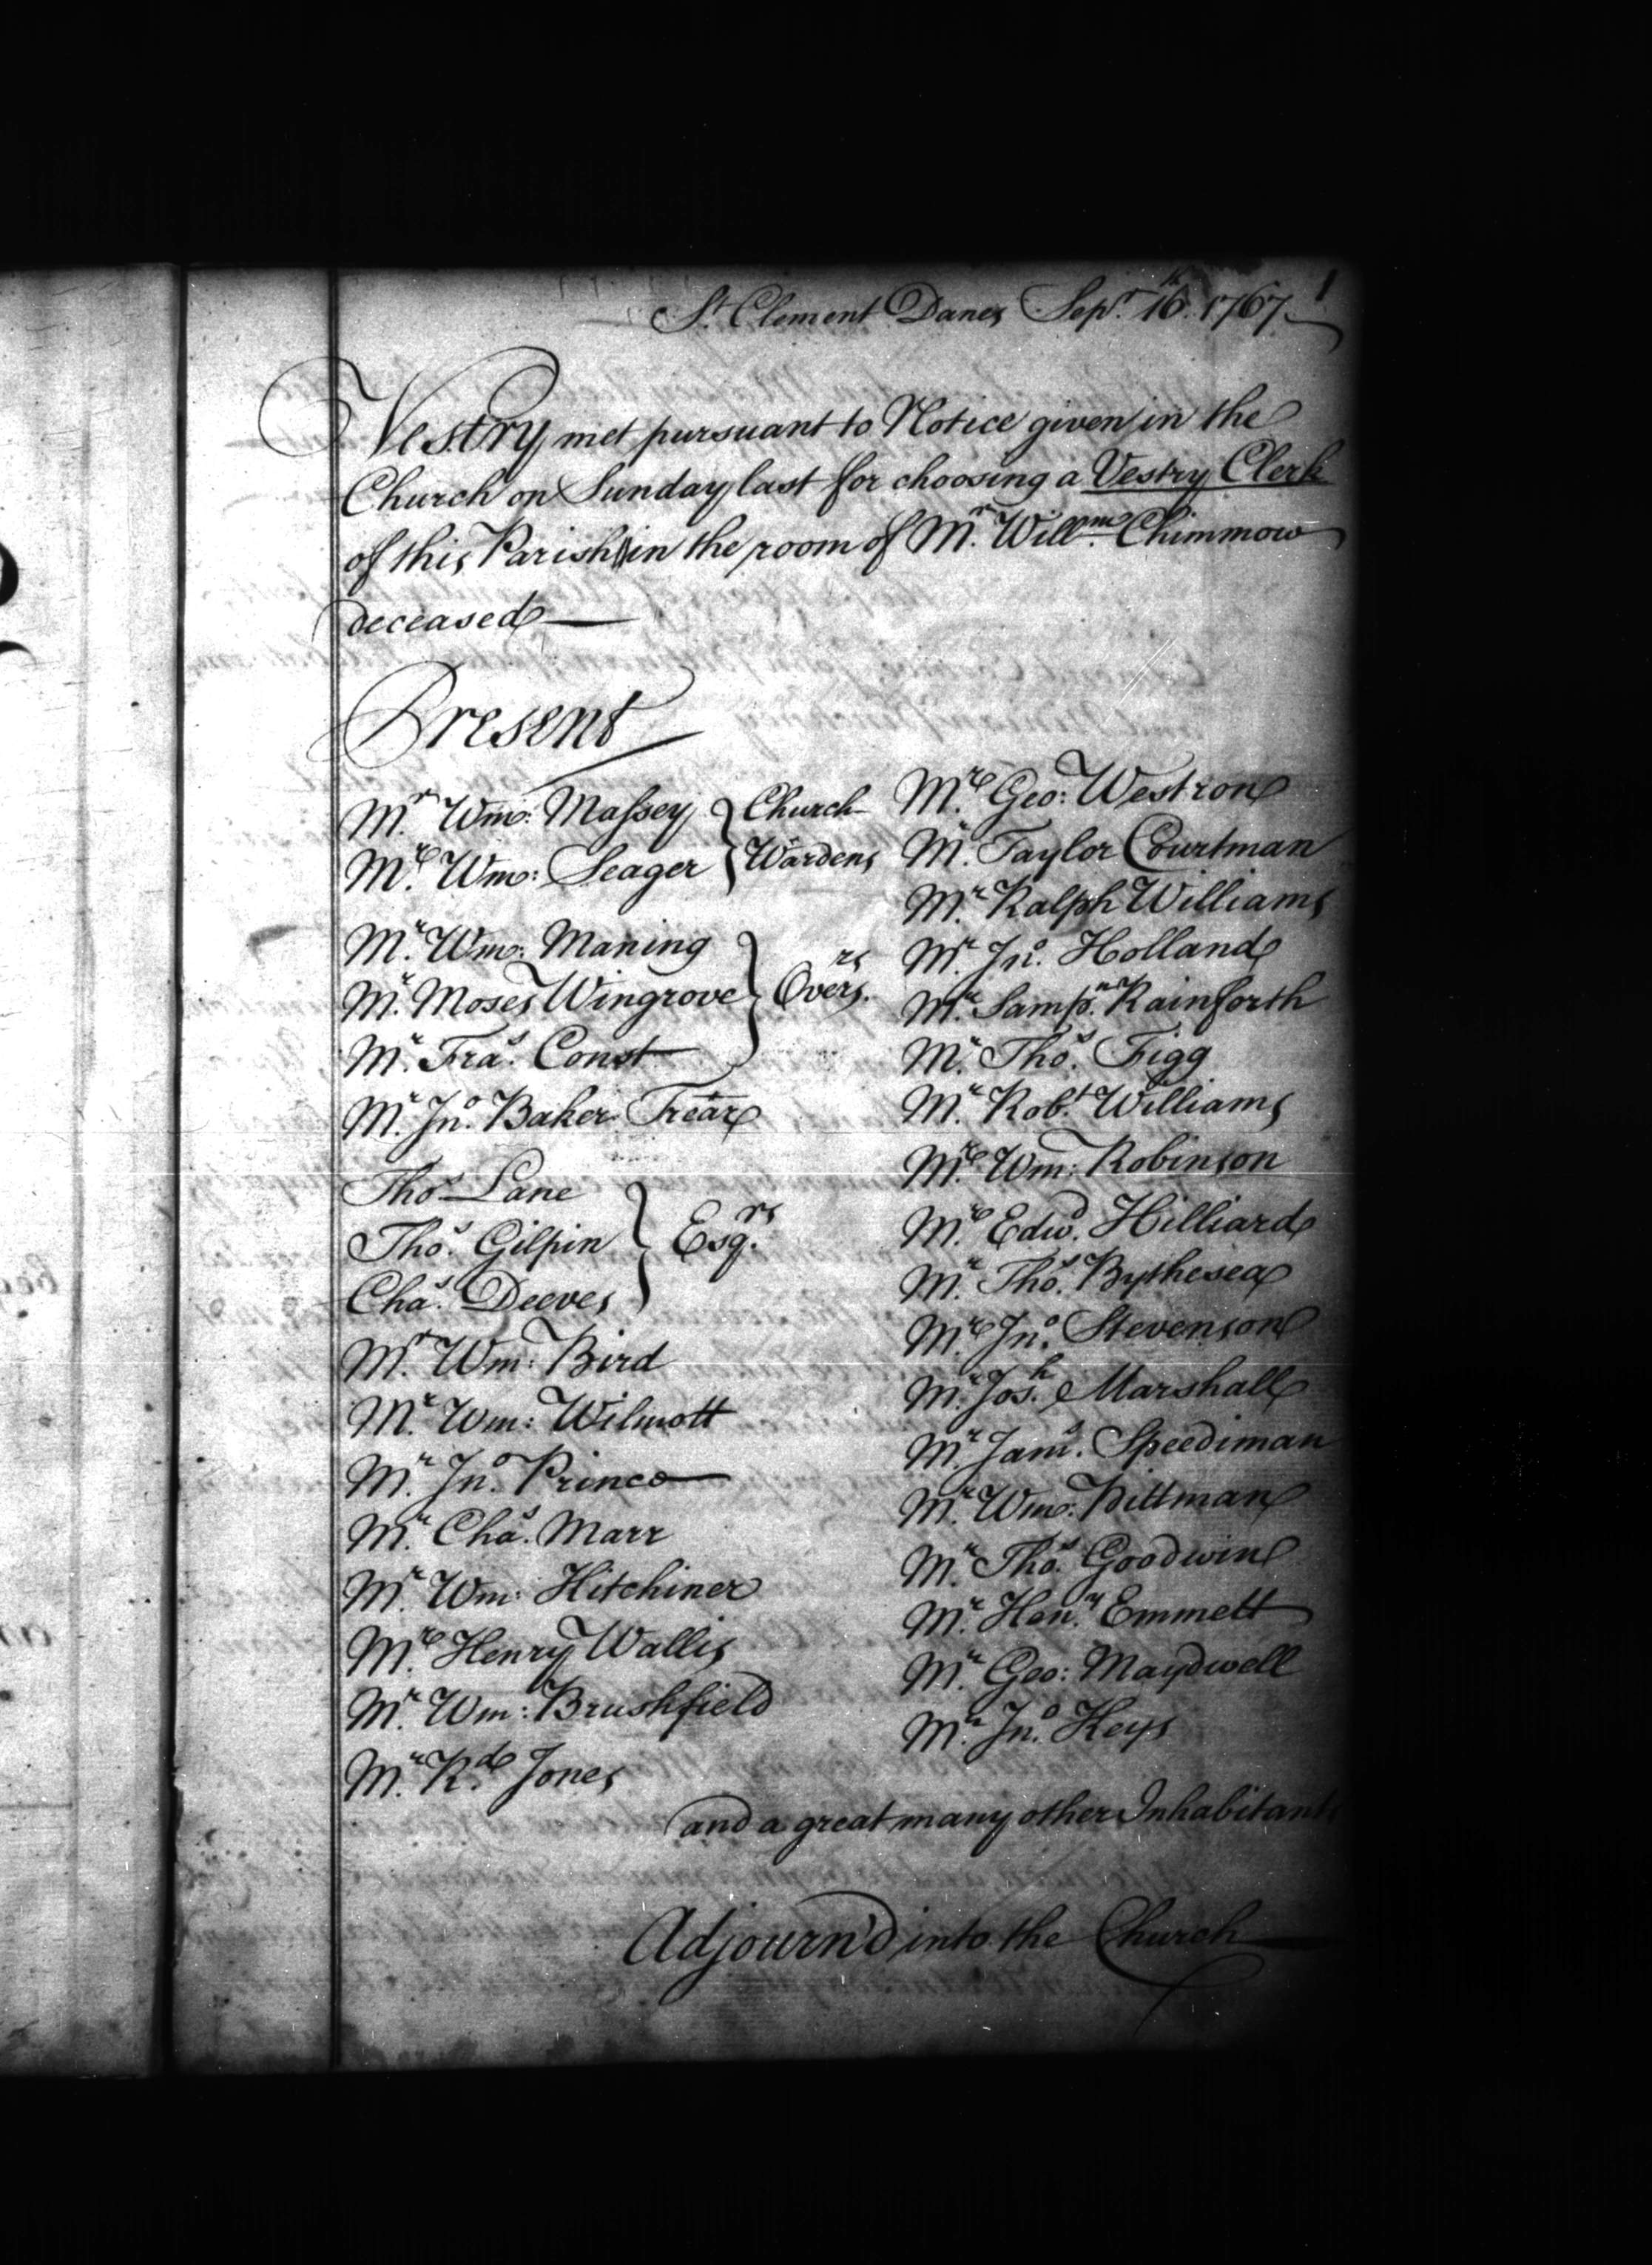 1
St. Clement Danes Sepr. 16th. 1767
Vestry met pursuant to Notice given in the
Church on Sunday last for choosing a Vestry Clerk
of this Parish in the room of Mr. Willm. Chimmow
deceased
Present
Mr. Wm: Massey
Mr. Wm: Seager
Church Wardens
Mr. Wm: Maning
Mr. Moses Wingrove
Mr. Fras. Const
Overs.rs
Mr. Jno. Baker Trear
Thos. Lane
Thos. Gilpin
Chas. Deeves
Esqrs.
Mr. Wm: Bird
Mr. Wm: Wilmott
Mr. Jno. Prince
Mr. Chas. Marr
Mr. Wm: Hitchiner
Mr. Henry Wallis
Mr. Wm: Brushfield
Mr. Rd. Jones
Mr. Geo: Westron
Mr. Taylor Courtman
Mr. Ralph Williams
Mr. Jno. Holland
Mr. Sampn. Rainforth
Mr. Thos. Figg
Mr. Robt. Williams
Mr. Wm: Robinson
Mr. Edwd. Hilliard
Mr. Thos. Bythesea
Mr. Jno. Stevenson
Mr. Josh. Marshall
Mr. Jams. Speediman
Mr. Wm: Pittman
Mr. Thos. Goodwin
Mr. Heny. Emmett
Mr. Geo: Maydwell
Mr. Jno. Keys
and a great many other Inhabitants
Adjourn'd into the Church